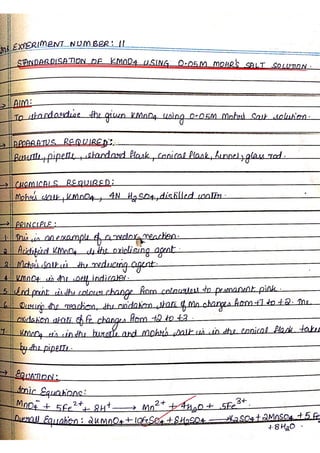 EXPERIMENT NUMBER: 11
STANDARDISATION OF KMnO4 USING 0.05M MOHR'S SALT SOLUTION.
→ AIM:
To standardise the given KMnO4 using 0.05M Mohr's salt solution.
→ APPARATUS REQUIRED:
Burette, pipette, standard flask, conical flask, funnel, glass rod.
→ CHEMICALS REQUIRED:
Mohr's salt, KMnO4, 4N H2SO4, distilled water.
→ PRINCIPLE:
1 This is an example of a redox reaction.
2 Acidified KMnO4 is the oxidising agent
3 Mohr's salt is the reducing agent.
4 KMnO4 is the self indicator.
5 End point is the colour change from colourless to permanent pink.
6 During the reaction, the oxidation state of Mn changes from +7 to +2. The
oxidation state of Fe changes from +2 to +3.
7 KMnO4 is in the burette and Mohr's salt is in the conical flask taken
by the pipette.
→ EQUATION:
Ionic Equations:
MnO4⁻ + 5Fe²⁺ + 8H⁺ → Mn²⁺ + 4H2O + 5Fe³⁺
Overall Equation: 2KMnO4 + 10FeSO4 + 8H2SO4 → K2SO4 + 2MnSO4 + 5Fe
+ 8H2O